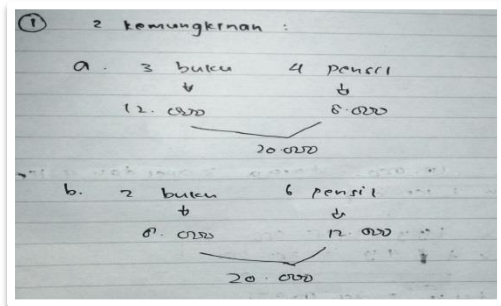 ① 2 kemungkinan :
a. 3 buku 4 pensil
12.000 8.000
20.000
b. 2 buku 6 pensil
8.000 12.000
20.000